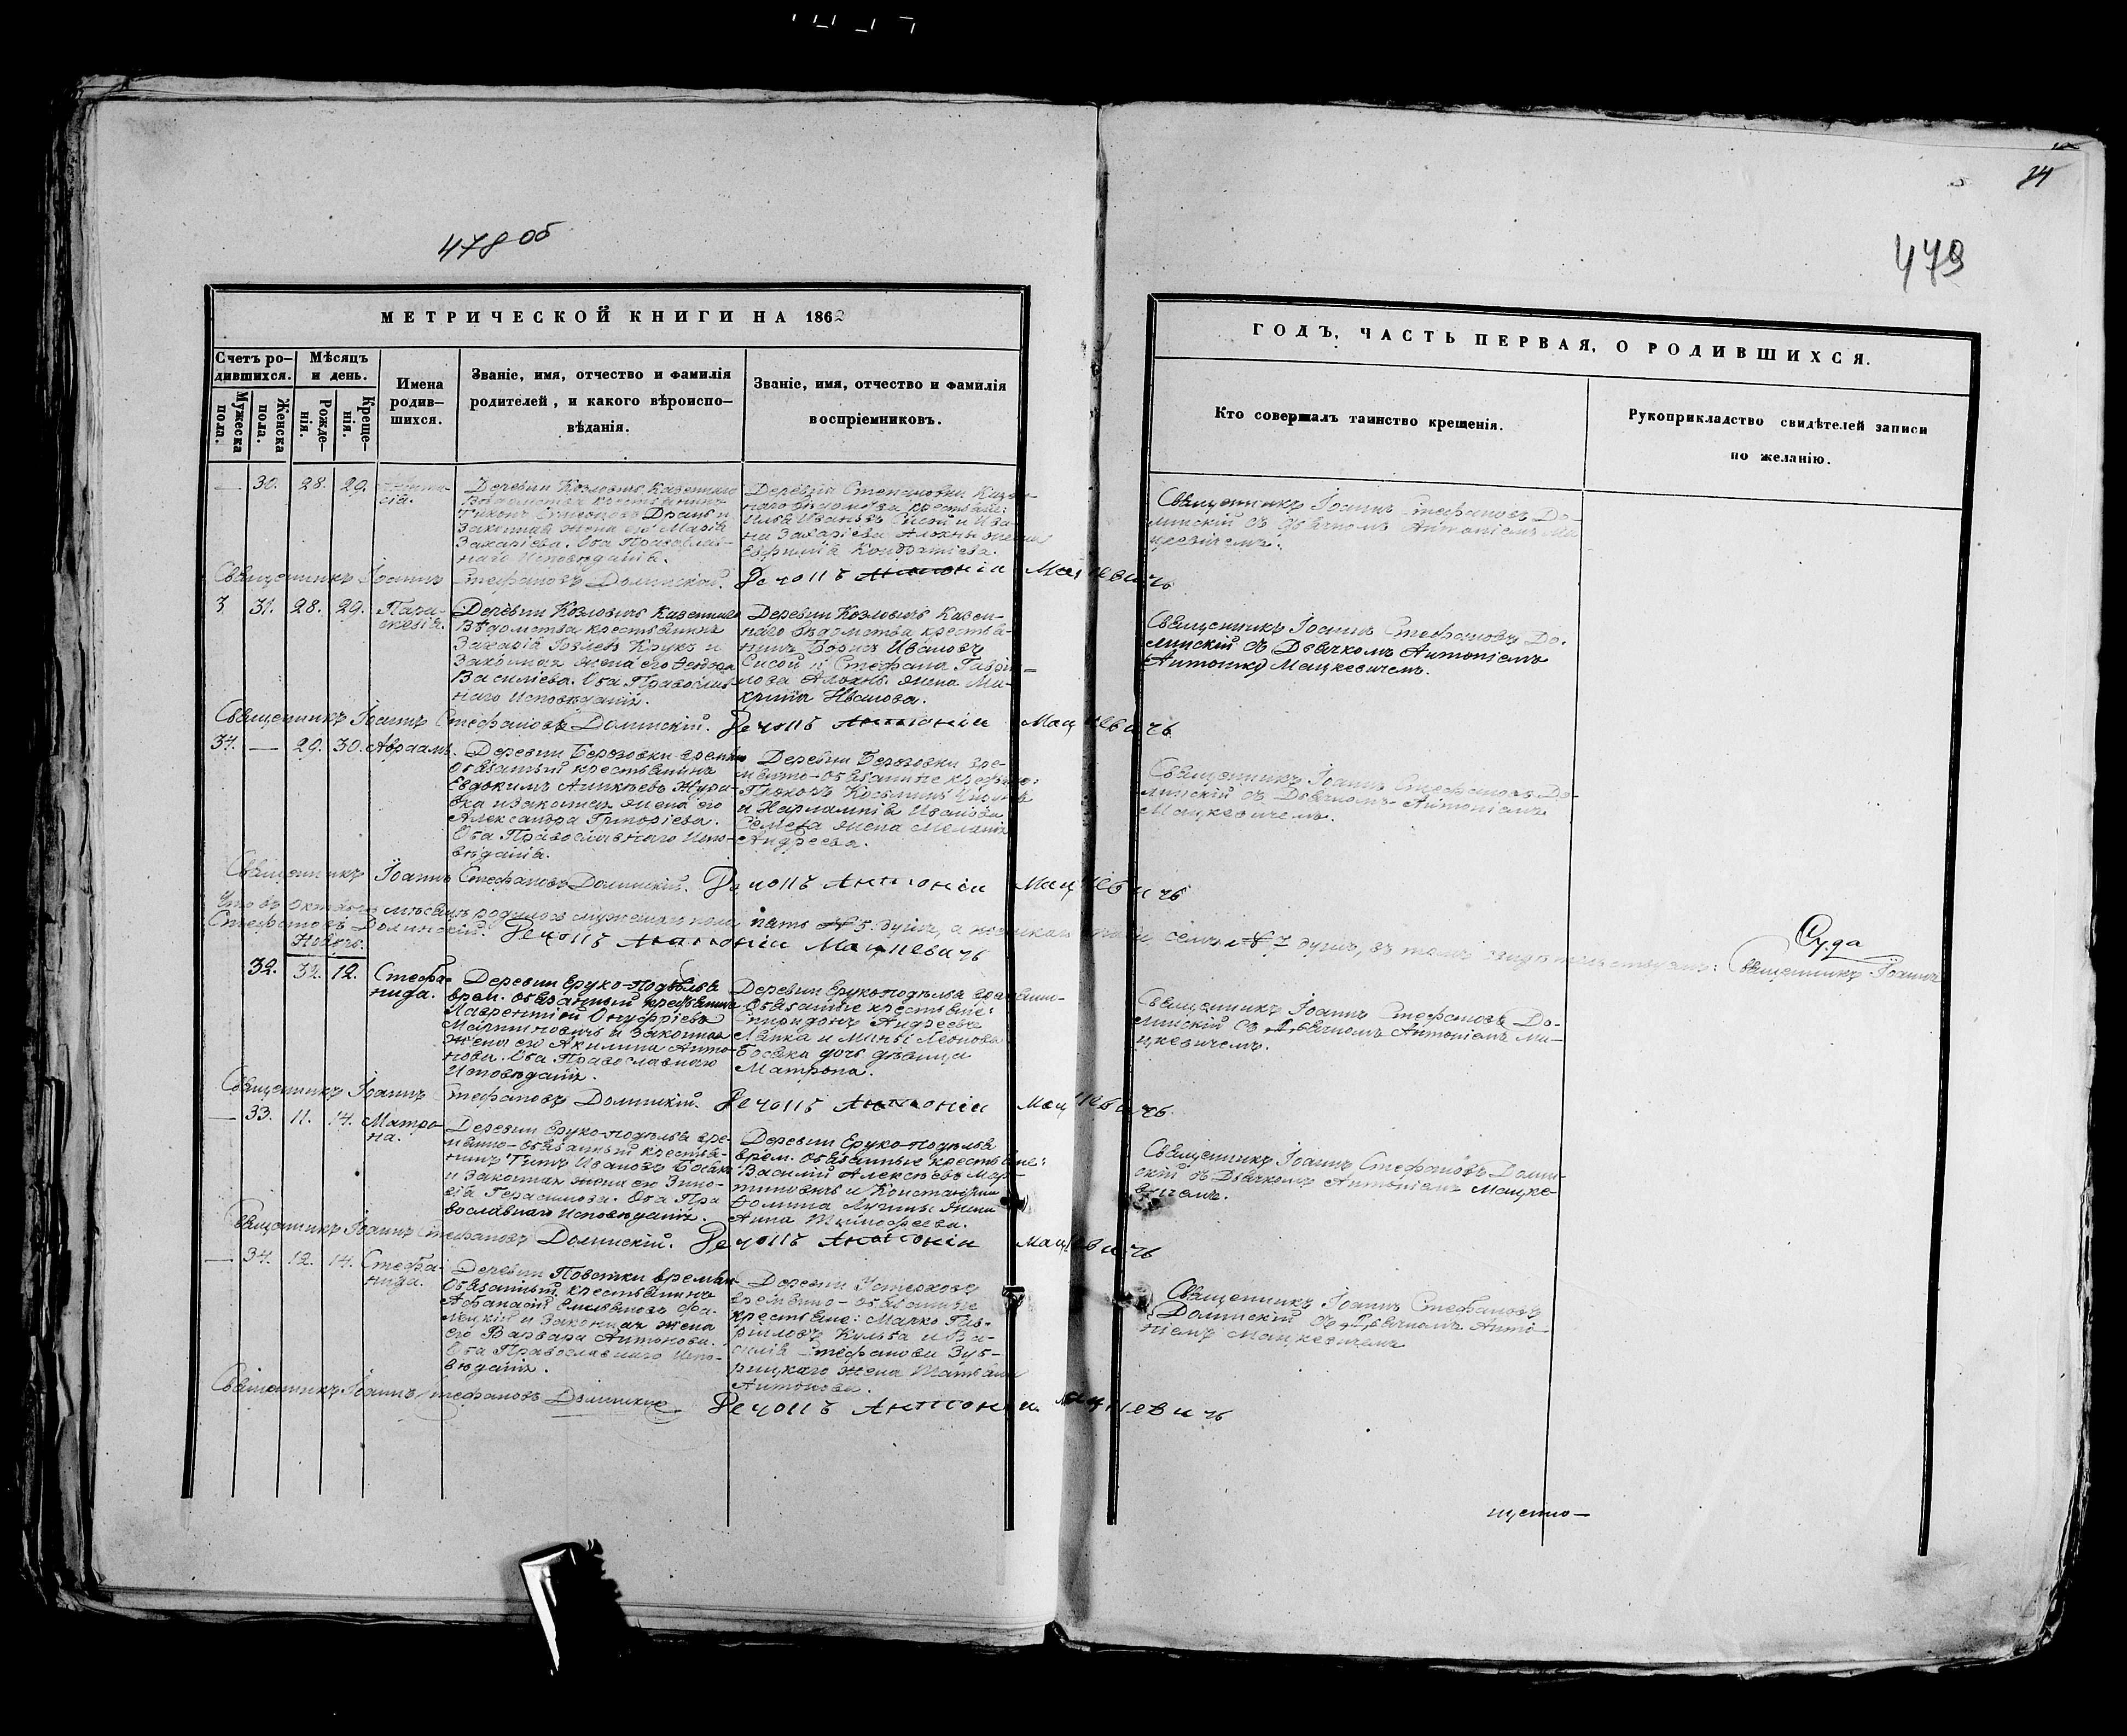 478 об
МЕТРИЧЕСКОЙ КНИГИ НА 1862
Счетъ ро-
дившихся.
Мѣсяцъ
и день.
Мужеска
пола.
Женска
пола.
Рожде-
нія.
Креще-
нія.
Имена
родив-
шихся.
Званіе, имя, отчество и фамилія
родителей, и какого вѣроиспо-
вѣданія.
Званіе, имя, отчество и фамилія
воспріемниковъ.
— 30. 28. 29.
сія.
Деревни Козловичъ Казеннаго
Вѣдомства крестьянинъ
Тихонъ
Законная жена его Марія
Захаріева. Оба Православ-
наго Исповѣданія.
Деревни Степановки Казен-
наго вѣдомства крестьяне:
Илья Ивановъ Сисой и Ива-
на Захаріева жена
Евфимія Кондратіева.
Священникъ Іоаннъ Стефановъ Долинскій. Дечокъ Антоній Мацкевичъ
31. 28. 29. Пара-
скевія.
Деревни Козловичъ Казеннаго
Вѣдомства крестьянинъ
Захарія Крукъ и
Законная жена его
Василіева. Оба Православ-
наго Исповѣданія.
Деревни Козловичъ Казен-
наго вѣдомства крестья-
нинъ Борисъ Ивановъ
Сисой и Стефана Гаври-
лова жена Ма-
Иванова.
Священникъ Іоаннъ Стефановъ Долинскій. Дечокъ Антоній Мацкевичъ
34. — 29. 30. Авраамъ.
Деревни Березовки времен
Обязанный крестьянинъ
Евдокимъ
и Законная жена его
Александра Григоріева.
Оба Православнаго Испо-
вѣданія.
Деревни Березовки вре-
менно-обязанные крестьяне:
и Харлампія Иванова
жена Меланія
Андреева.
Священникъ Іоаннъ Стефановъ Долинскій. Дечокъ Антоній Мацкевичъ
Что въ Октябрѣ мѣсяцѣ родилось мужескаго пола пять № 5. душъ, а женскаго семь № 7 душъ, въ томъ свидѣтельствуемъ: Священникъ Іоаннъ
Стефановъ Долинскій. Дечокъ Антоній Мацкевичъ
Ноябрь.
32. 12. Стефа-
нида.
Деревни Еруко-Подѣлья
врем. обязанный крестьянинъ
Лаврентій Онуфріевъ
Мартиновичъ и Законная
жена его Акилина Анто-
нова. Оба Православнаго
Исповѣданія.
Деревни Еруко-подѣлья временно-
Обязанные крестьяне:
Спиридонъ Андреевъ
Лапка и Леонова
дочь дѣвица
Матрона.
Священникъ Іоаннъ Стефановъ Долинскій. Дечокъ Антоній Мацкевичъ
— 33. 11. 14. Матро-
на.
Деревни Еруко-подѣлья вре-
менно-обязанный крестья-
нинъ Титъ Ивановъ
и Законная жена его Зино-
вія Герасимова. Оба Пра
вославнаго Исповѣданія.
Деревни Еруко-подѣлья
врем. Обязанные крестьяне:
Василій Алексѣевъ Мар-
тиновичъ и Константина
жена
Анна Тимофеева.
Священникъ Іоаннъ Стефановъ Долинскій. Дечокъ Антоній Мацкевичъ
— 34. 12. 14. Стефа-
нида.
Деревни времен
Обязанный крестьянинъ
Афанасій Емельяновъ
и Законная жена
его Варвара Антонова.
Оба Православнаго Испо-
вѣданія.
Деревни
временно-обязанные
крестьяне: Марко Гав-
риловъ Кульба и Ва-
силія Стефанова Зуб-
рицкаго жена Татьяна
Антонова.
Священникъ Іоаннъ Стефановъ Долинскій Дечокъ Антоній Мацкевичъ
479
ГОДЪ, ЧАСТЬ ПЕРВАЯ, О РОДИВШИХСЯ.
Кто совершалъ таинство крещенія.
Рукоприкладство свидѣтелей записи
по желанію.
Священникъ Іоаннъ Стефановъ До-
линскій съ Дьячкомъ Антоніемъ Ма-
цкевичемъ.
Священникъ Іоаннъ Стефановъ До-
линскій съ Дьячкомъ Антоніемъ
Мацкевичемъ.
Священникъ Іоаннъ Стефановъ До-
линскій съ Дьячкомъ Антоніемъ
Мацкевичемъ.
Священникъ Іоаннъ Стефановъ До-
линскій съ Дьячкомъ Антоніемъ Ма-
цкевичемъ.
Священникъ Іоаннъ Стефановъ Долин-
скій съ Дьячкомъ Антоніемъ Мацке-
вичемъ.
Священникъ Іоаннъ Стефановъ
Долинскій съ Дьячкомъ Анто-
ніемъ Мацкевичемъ